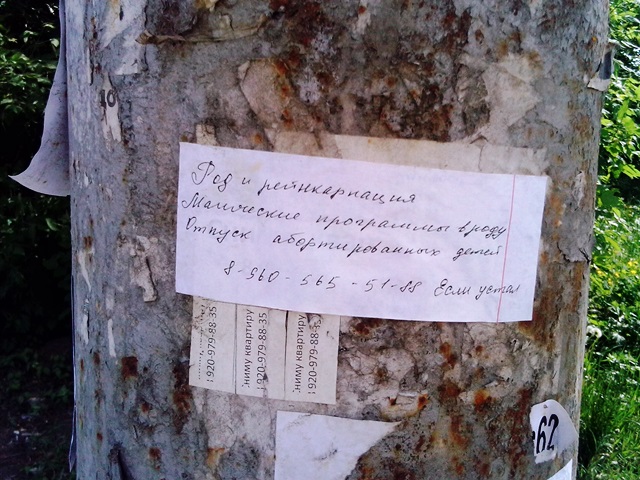 10
Род и реинкарнация
Магические программы в роду
Отпуск абортированных детей
8-960-565-51-88 Если устал
920-979-88-35
сниму квартиру
920-979-88-35
сниму квартиру
920-979-88-35
62